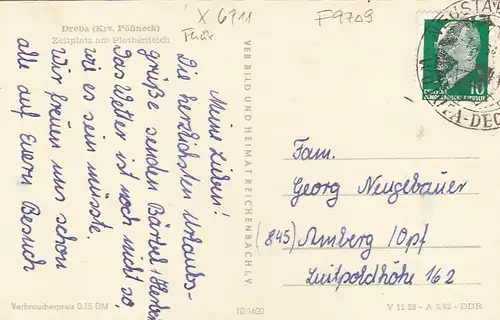 Dreba (Krs. Pößneck)
Zeltplatz am Plothenteich
X 6711
Thür.
F9708
Meine Lieben!
Die herzlichsten Urlaubs-
grüße senden Bärbel + Herbert
Das Wetter ist noch nicht so,
wie es sein müsste.
Wir freuen uns schon
alle auf Euern Besuch
VEB BILD UND HEIMAT REICHENBACH I. V.
10
DEUTSCHE
DEMOKRATISCHE REPUBLIK
NEUSTA
Fam.
Georg Neugebauer
(845) Amberg / Opf
Luitpoldhöhe 162
Verbraucherpreis 0,15 DM
10/1620
V 11 28 - A 3/62 - DDR